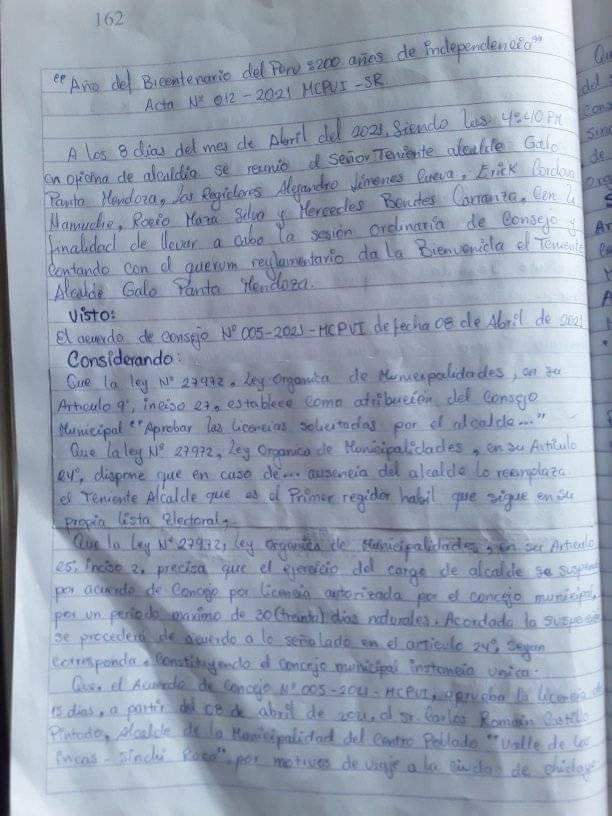 162
"Año del Bicentenario del Perú: 200 años de independencia"
Acta N° 012-2021 MCPVI-SR
A los 8 días del mes de Abril del 2021, Siendo las 4:40 PM
en oficina de alcaldía se reunió el señor Teniente alcalde Galo
Panta Mendoza, las Regidores Alejandro Jimenes Cueva, Erick Cordova
Mamuche, Rocio Maza Silva y Mercedes Benites Carranza, Con la
finalidad de llevar a cabo la sesión ordinaria de Consejo y
Contando con el querum reglamentario da la Bienvenida el Teniente
Alcalde Galo Panta Mendoza.
Visto:
El acuerdo de consejo N° 005-2021-MCPVI de fecha 08 de Abril de 2021
Considerando:
Que la ley N° 27972, Ley Organica de Municipalidades, en su
Articulo 9°, inciso 27, establece como atribución del Consejo
Municipal "Aprobar las licencias solicitadas por el alcalde..."
Que la ley N° 27972, Ley Organica de Municipalidades, en su Artículo
24°, dispone que en caso de... ausencia del alcalde lo reemplaza
el Teniente Alcalde que es el Primer regidor habil que sigue en su
propia lista Electoral,
Que la Ley N° 27972, ley organica de Municipalidades, en su Articulo
25, Inciso 2, precisa que el ejercicio del cargo de alcalde se suspende
por acuerdo de Concejo por licencia autorizada por el concejo municipal,
por un periodo maximo de 30 (treinta) días naturales. Acordado la suspensión
se procederá de acuerdo a lo señalado en el articulo 24°, Segun
corresponda, Constituyendo el concejo municipal instancia unica.
Que, el Acuerdo de concejo N° 005-2021-MCPVI, aprueba la licencia de
15 dias, a partir del 08 de abril de 2021, al sr Carlos Romain Castillo
Pintado, Alcalde de la Municipalidad del Centro Poblado "Valle de los
incas - Sinchi Roca", por motivos de viaje a la ciudad de chiclayo